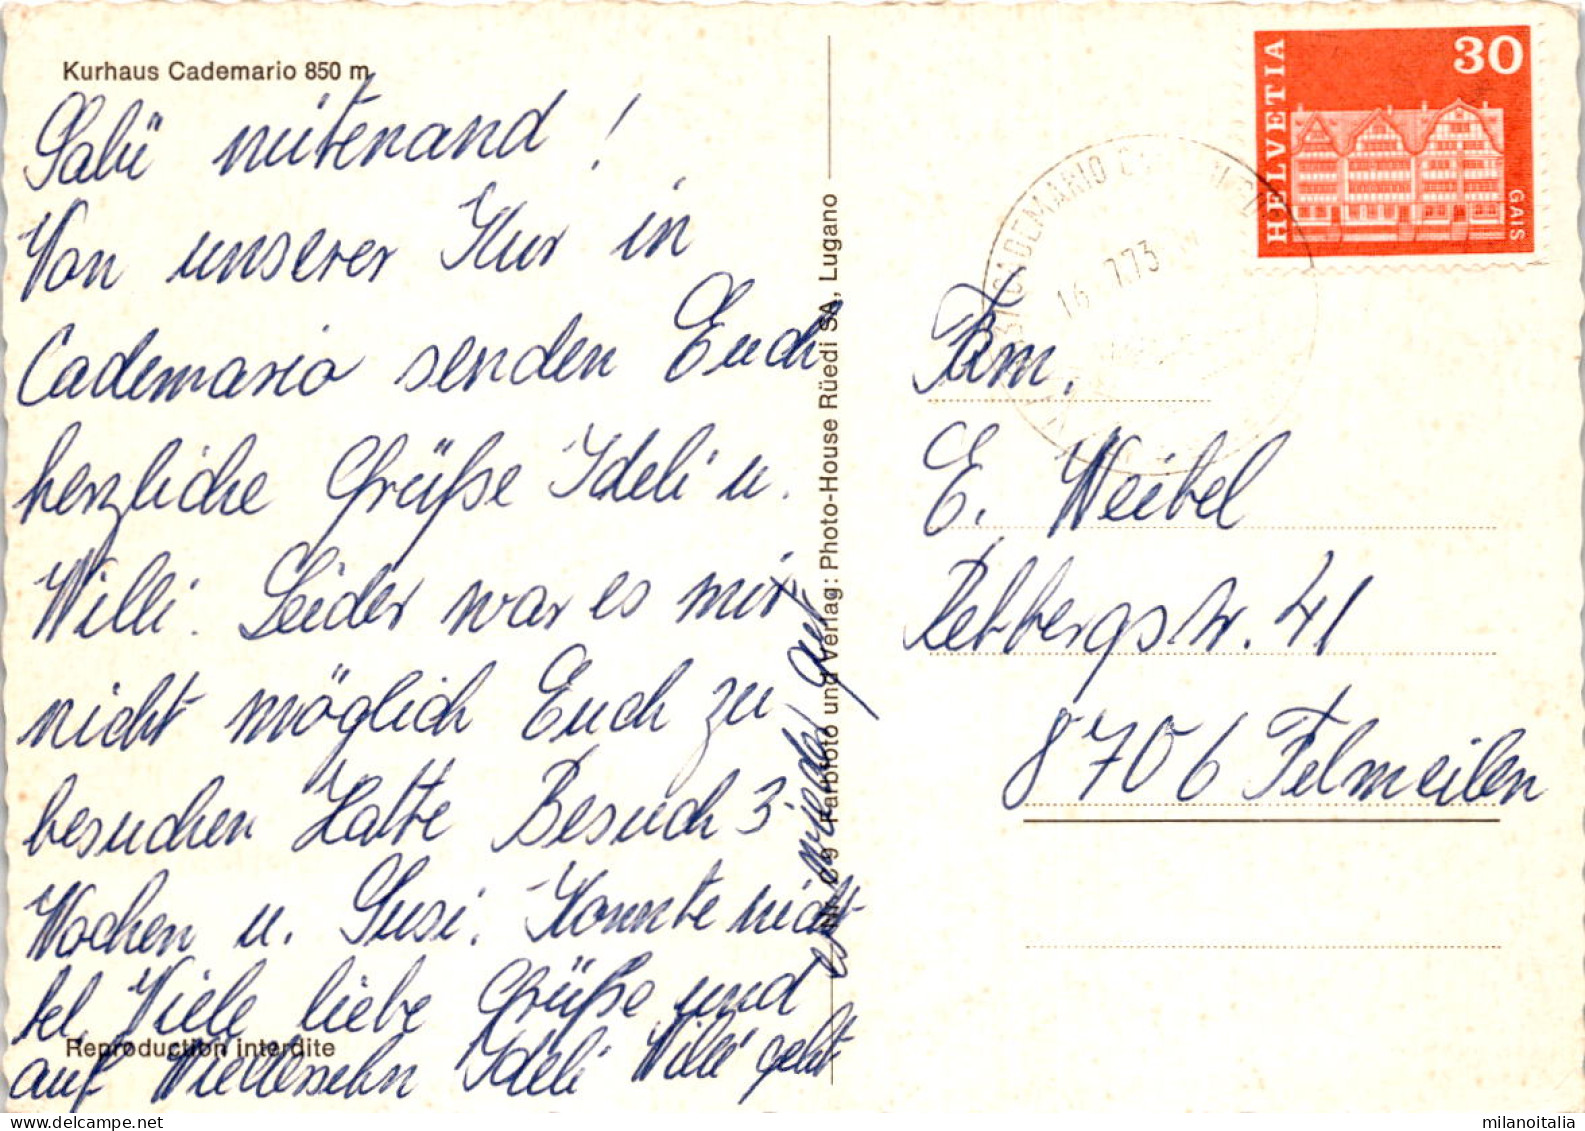 Kurhaus Cademario 850 m
Salü mitenand!
Von unserer Kur in
Cademario senden Euch
herzliche Grüße Ideli u.
Willi. Leider war es mir
nicht möglich Euch zu
besuchen Hatte Besuch 3
Wochen u. Susi. Konnte nicht
tel. Viele liebe Grüße und
auf Wiedersehn Ideli Willi geht
es wieder gut
Reproduction interdite
Farbfoto und Verlag: Photo-House Rüedi SA, Lugano
HELVETIA
30
GAIS
CADEMARIO
16.7.73
Fam.
E. Weibel
Rebbergstr. 41
8706 Felmeilen
milanoitalia